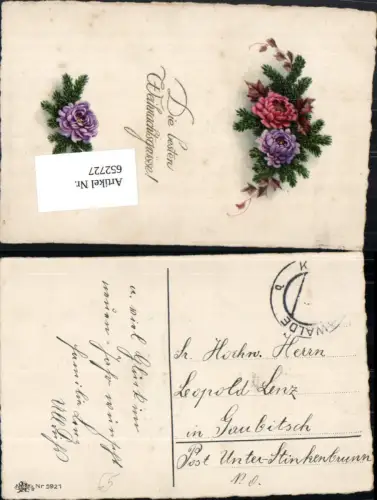 Die besten
Weihnachtsgrüsse!
Artikel Nr.
652727
u. viel Glück im
neuen Jahr wünscht
Familie Lenz
K
WALDE
b
Sr. Hochw. Herrn
Leopold Lenz
in Gaubitsch
Post Unter-Stinkenbrunn
N.Ö.
65
Nr 5921